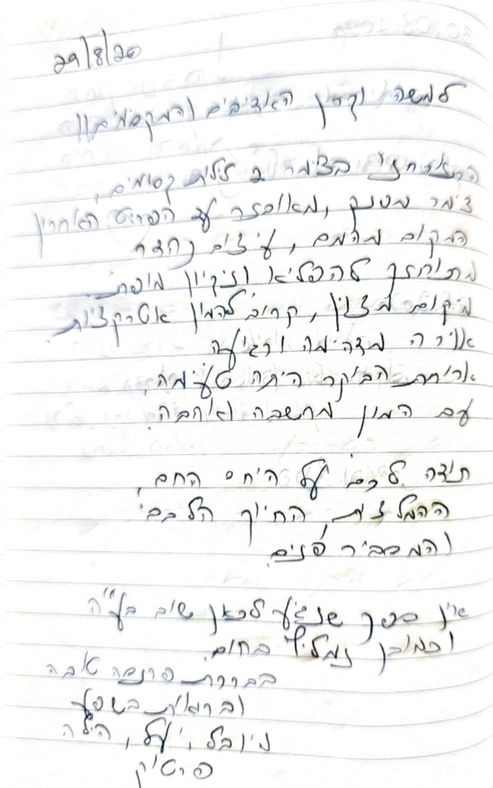 29/8/20
למשה וקרין האדיבים והמקסימים!!
התארחנו בצימר 2 לילות קסומים,
צימר מפנק, מאובזר עד הפריט האחרון
המקום מהמם, עיצוב נהדר
מתוחזק להפליא וניקיון מופתי.
מיקום מצוין, קרוב להמון אטרקציות.
אוירה מדהימה ורגיעה
ארוחת הבוקר היתה טעימה,
עם המון מחשבה ואהבה.
תודה לכם על היחס החם,
ההמלצות, החיוך הלבבי
והמסביר פנים.
אין ספק שנגיע לכאן שוב בע"ה
וכמובן נמליץ בחום.
בברכת פרנסה טובה
ובריאות בשפע
יובל, יעל, הילה